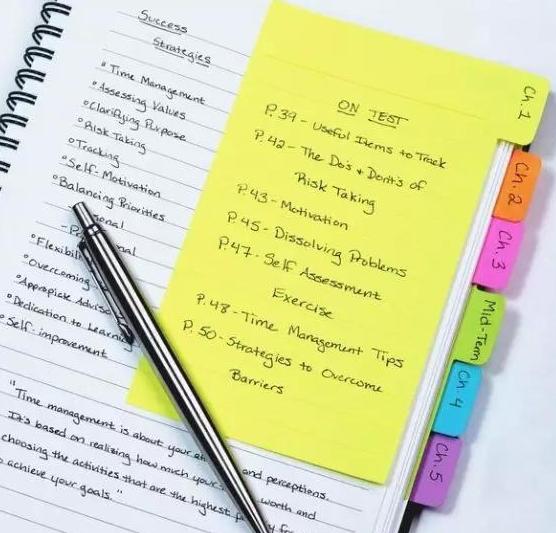 Success
Strategies
° Time Management
° Assessing Values
° Clarifying Purpose
° Risk Taking
° Tracking
° Self-Motivation
° Balancing Priorities
° Overcoming
° Dedication to Learning
° Self-improvement
"Time management is about your and perceptions.
It's based on realizing how much your worth and
choosing the activities that are the highest
achieve your goals."
ON TEST
P. 39 - Useful Items to Track
P. 42 - The Do's & Dont's of
Risk Taking
P. 43 - Motivation
P. 45 - Dissolving Problems
P. 47 - Self Assessment
Exercise
P. 48 - Time Management Tips
P. 50 - Strategies to Overcome
Barriers
Ch. 1
Ch. 2
Ch. 3
Mid-Term
Ch. 4
Ch. 5